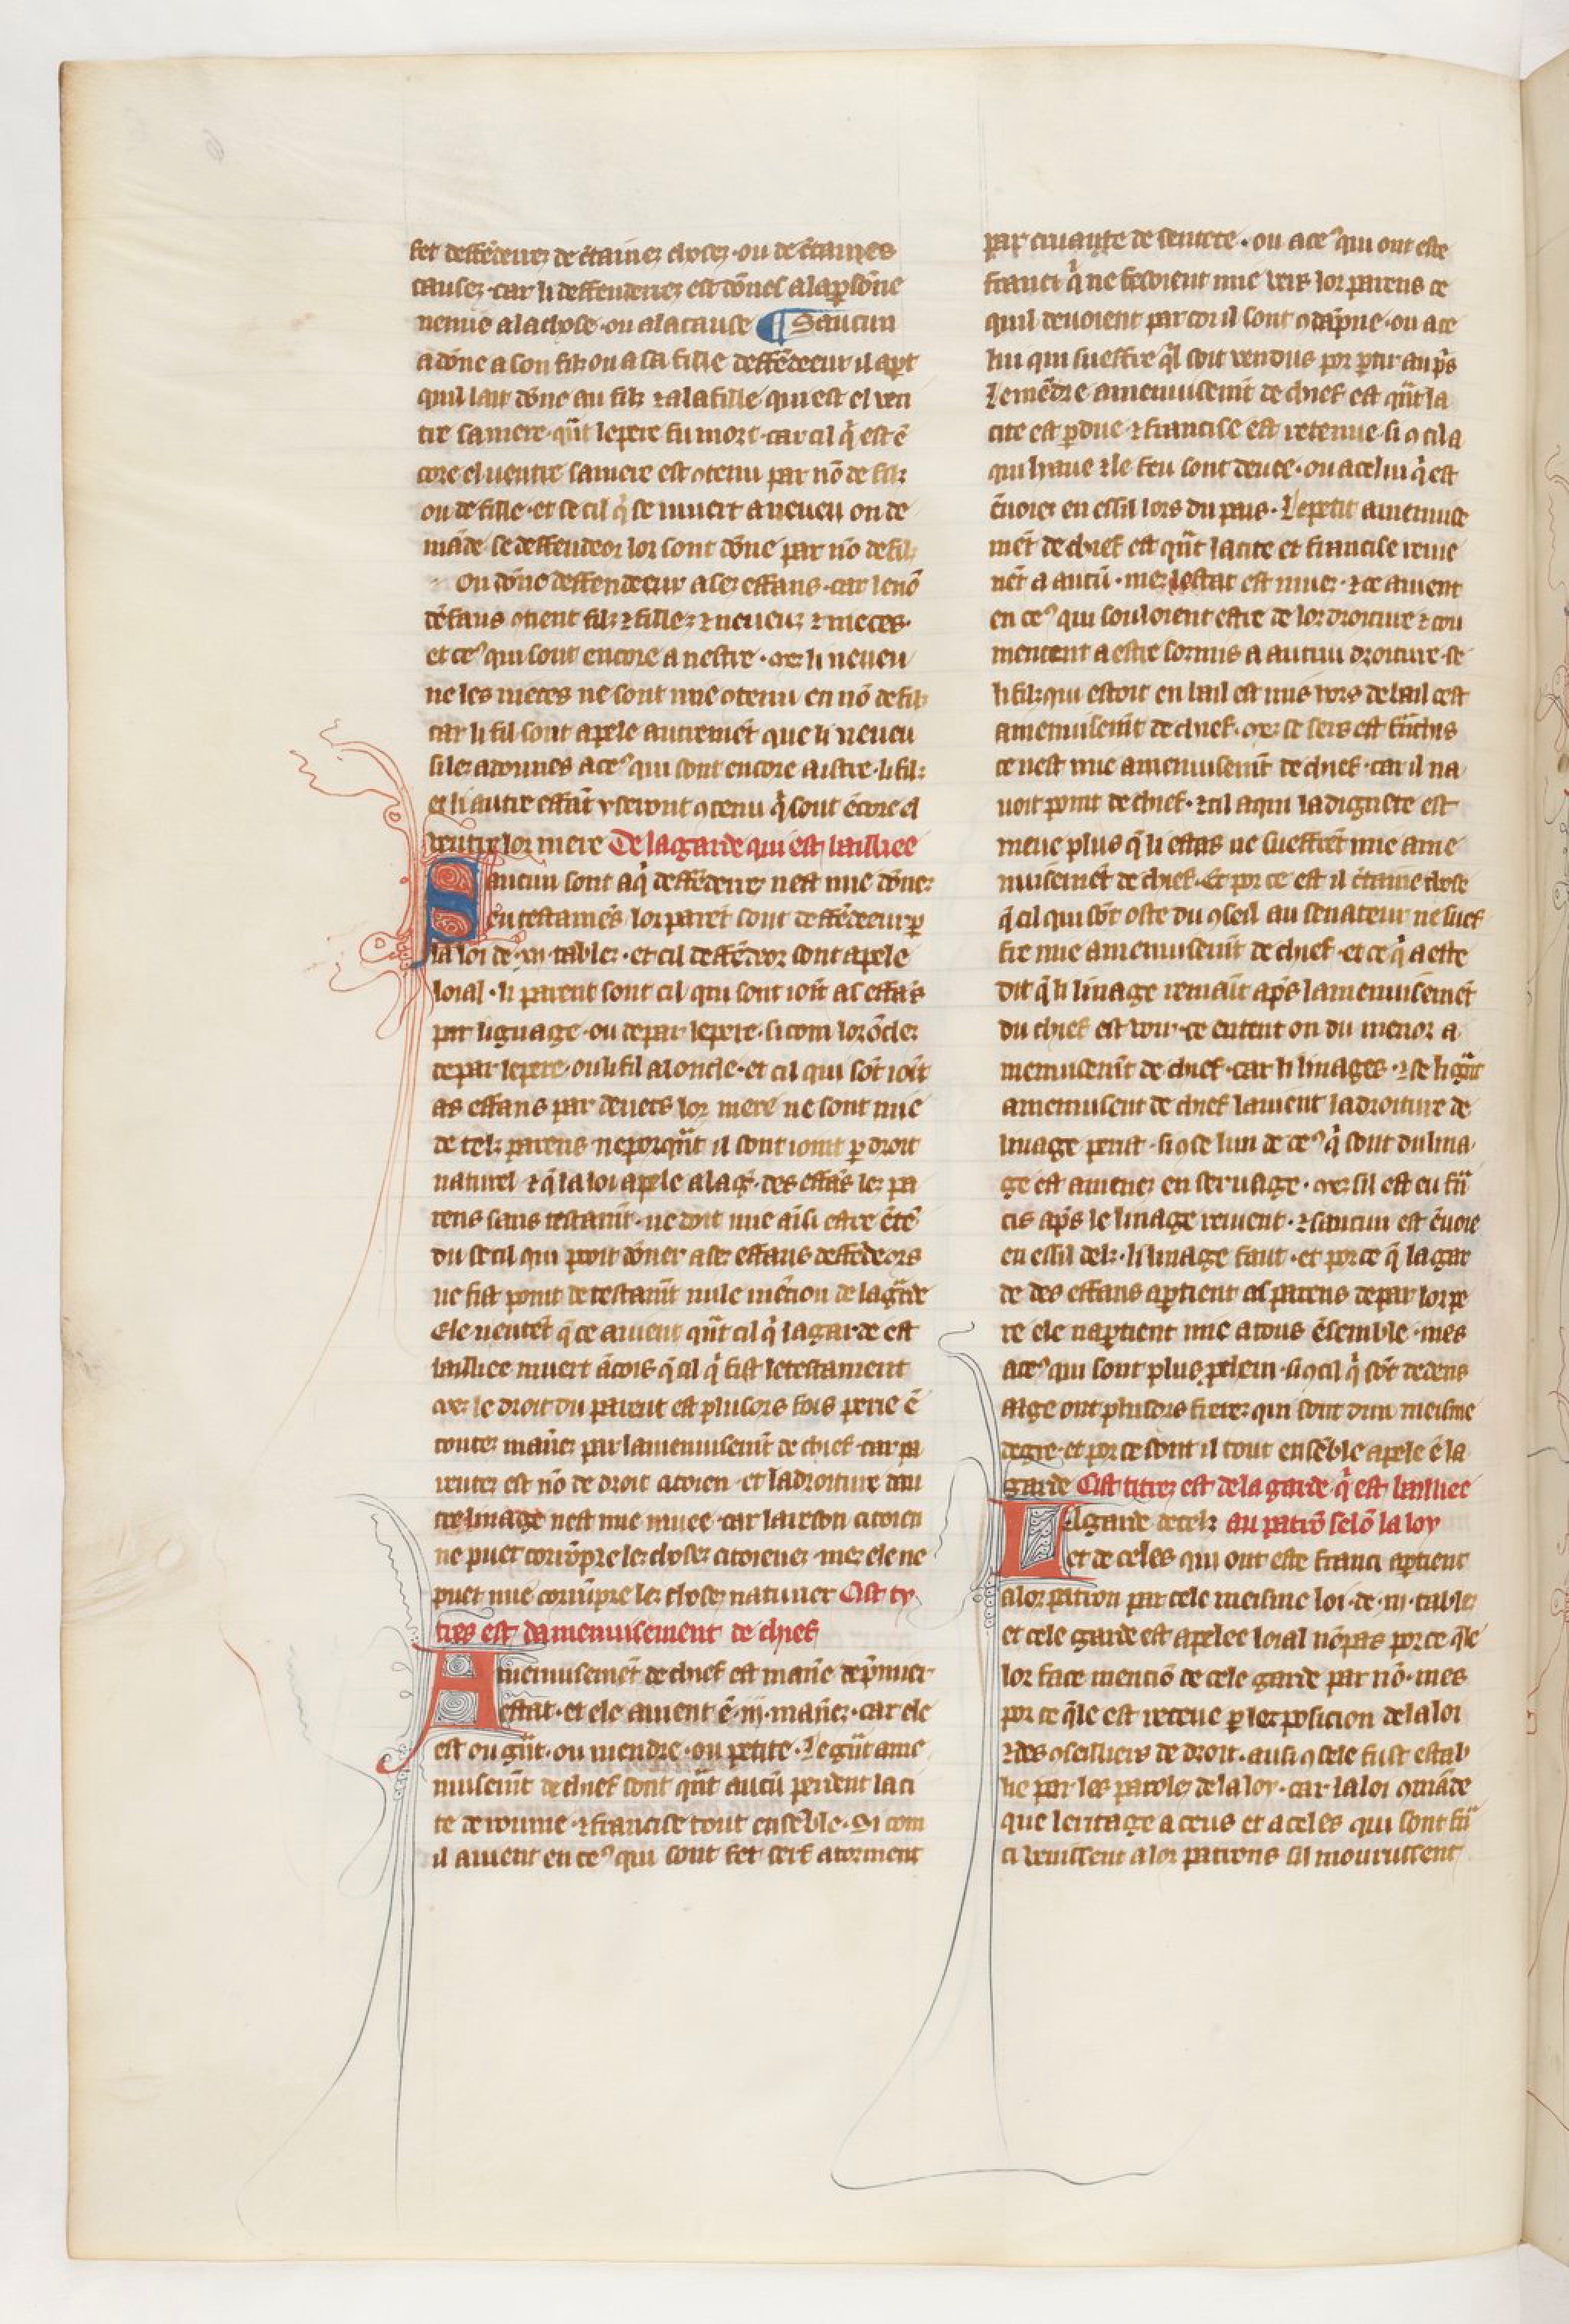 fet deffēdeur de c̄taines choses · ou de c̄taines
causes · car li deffenderres est dōnes a la ꝑsōne
nemie a la chose · ou a la cause ¶ Saucun
a dōne a son filz ou a sa fille deffēdeeur il aꝑt
quil lait dōne au filz ⁊ a la fille qui est el ven
tre sa mere · qūt le pere fu mort · car cil q̇ est ē
core el uentre sa mere est ꝯtenu par nō de filz
ou de fille · et se cil q̇ se muert a neueu ou de
māde · se deffendeor lor sont dōne par nō de filz
Ou dōne deffendeeur a ses effans · car le nō
dēfans ꝯtient filz ⁊ filles ⁊ neueuz ⁊ nieces ·
et ceꝰ qui sont encore a nestre · mes li neueu
ne les nieces ne sont mie ꝯtenu en nō de filz
car li fil sont apele autremēt que li neueu
sil est a dōnnes a ceꝰ qui sont encore a istre · li filz
et li autre effāt y seront ꝯtenu q̇ sont ēcore el
ventre lor mere De la garde qui est bailliee
Saucun sont a q̇ deffēdeur nest mie dōnez
en testamēs lor parēt sont deffēdeeur ꝑ
la loi de · xii · tables · et cil deffēdeor sont apele
loial · li parent sont cil qui sont ioīt as effās
par liguage · ou de par le pere · si com lor ōcles
de par le pere · ou li fil a loncle · et cil qui sōt ioīt
as effans par deuers lor mere ne sont mie
de telz parens · neporqūt il sont ioint ꝑ droit
naturel ⁊ q̄ la loi apele a la g̃de des effās les pa
rens sans testamt̄ · ne doit mie aīsi estre ētē
du se cil qui pooit dōner a ses effans deffēdeors
ne fist point de testamt̄ nule mēcion de la g̃rde
Ele nentēt q̄ ce auient qūt cil q̇ la garde est
bailliee muert ācois q̄ cil q̇ fist le testament
mes le droit du parent est plusors fois perie ē
toutes maūes par lamenuisemt̄ de chief · car pa
rentes est nō de droit citoien · et la droiture dau
tre linage nest mie muee · car la reson citoien
ne puet corrōpre les choses citoienes · mes ele ne
puet mie corrūpre les choses naturiex Cist ty
tres est damenuisement de chief
Amenuisemēt de chief est maūe de p̄muer
estat · et ele auient ē · iij · maūes · car ele
est ou g̃ūt · ou mendre · ou petite · Le g̃ūt ame
nuisemt̄ de chief sont qūt aucū perdent la ci
te de roume · ⁊ francise tout ensēble · Si com
il auient en ceꝰ qui sont fet serf a torment
par cruaute de sentence · ou a ceꝰ qui ont este
franci q̇ ne fesoient mie vers lor parens ce
quil deuoient par coi il sont ꝯdāpne · ou a ce
lui qui sueffre q̄l soit vendus por ꝑtir au p̄s
Le mēdre amenuisemt̄ de chief est qūt la
cite est ꝑdue ⁊ francise est retenue · si ꝯ cil a
qui liaue ⁊ le feu sont deuee · ou a celui q̇ est
ēuoies en essil hors du pais · Le petit amenuise
mēt de chief est qūt la cite et francise reme
nēt a aucū · mes lestat est mues · ⁊ ce auient
en ceꝰ qui souloient estre de lor droiture ⁊ cou
mencent a estre sormis a autrui droiture · se
li filz qui estoit en bail est mis hors de bail cest
amenuisemt̄ de chief · mes se sers est frāchis
ce nest mie amenuisemt̄ de chief · car il na
uoit point de chief · ⁊ cil a qui la dignete est
meue plus q̄ li estas ne sueffrēt mie ame
nuisemēt de chief · Et por ce est il c̄taine chose
q̄ cil qui sōt oste du ꝯseil au senateur ne suef
fre mie amenuisemt̄ de chief · et ce q̇ a este
dit q̄ li linage remaīt ap̄s lamenuisemēt
du chief est voir · ce entent on du menor a
menuisemt̄ de chief · car li linages · ⁊ se li g̃ūt
amenuisemt de chief lauient la droiture de
linage perist · si ꝯ se lun de ceꝰ q̇ sont du lina
ge est amenez en seruage · mes sil est eu frā
cis ap̄s le linage reuient · ⁊ saucun est ēuoie
en essil delz · li linage faut · et por ce q̄ la gar
de des effans aꝑtient as parens de par lor pe
re ele naꝑtient mie a tous ēsemble · mes
a ceꝰ qui sont plus ꝓchein · si ꝯ cil q̇ sōt dedens
aige ont plusors freres qui sont dun meisme
degre · et por ce sont il tout ensēble apele ē la
garde Cist titres est de la garde q̇ est bailliee
La garde de celz au patrō selō la loy
et de celes qui ont este franci aꝑtient
a lor patron par cele meisme loi · de · xii · tables
et cele garde est apelee loial nō pas por ce q̄le
lor face menciō de cele garde par nō · mes
por ce q̄le est receue ꝑ lexposicion de la loi
⁊ des ꝯseilliers de droit · ausi ꝯ se le fust estab
lie par les paroles de la loy · car la loi ꝯmāde
que leritage a ceus et a celes qui sont frā
ci venissent a lor patrons sil mourussent